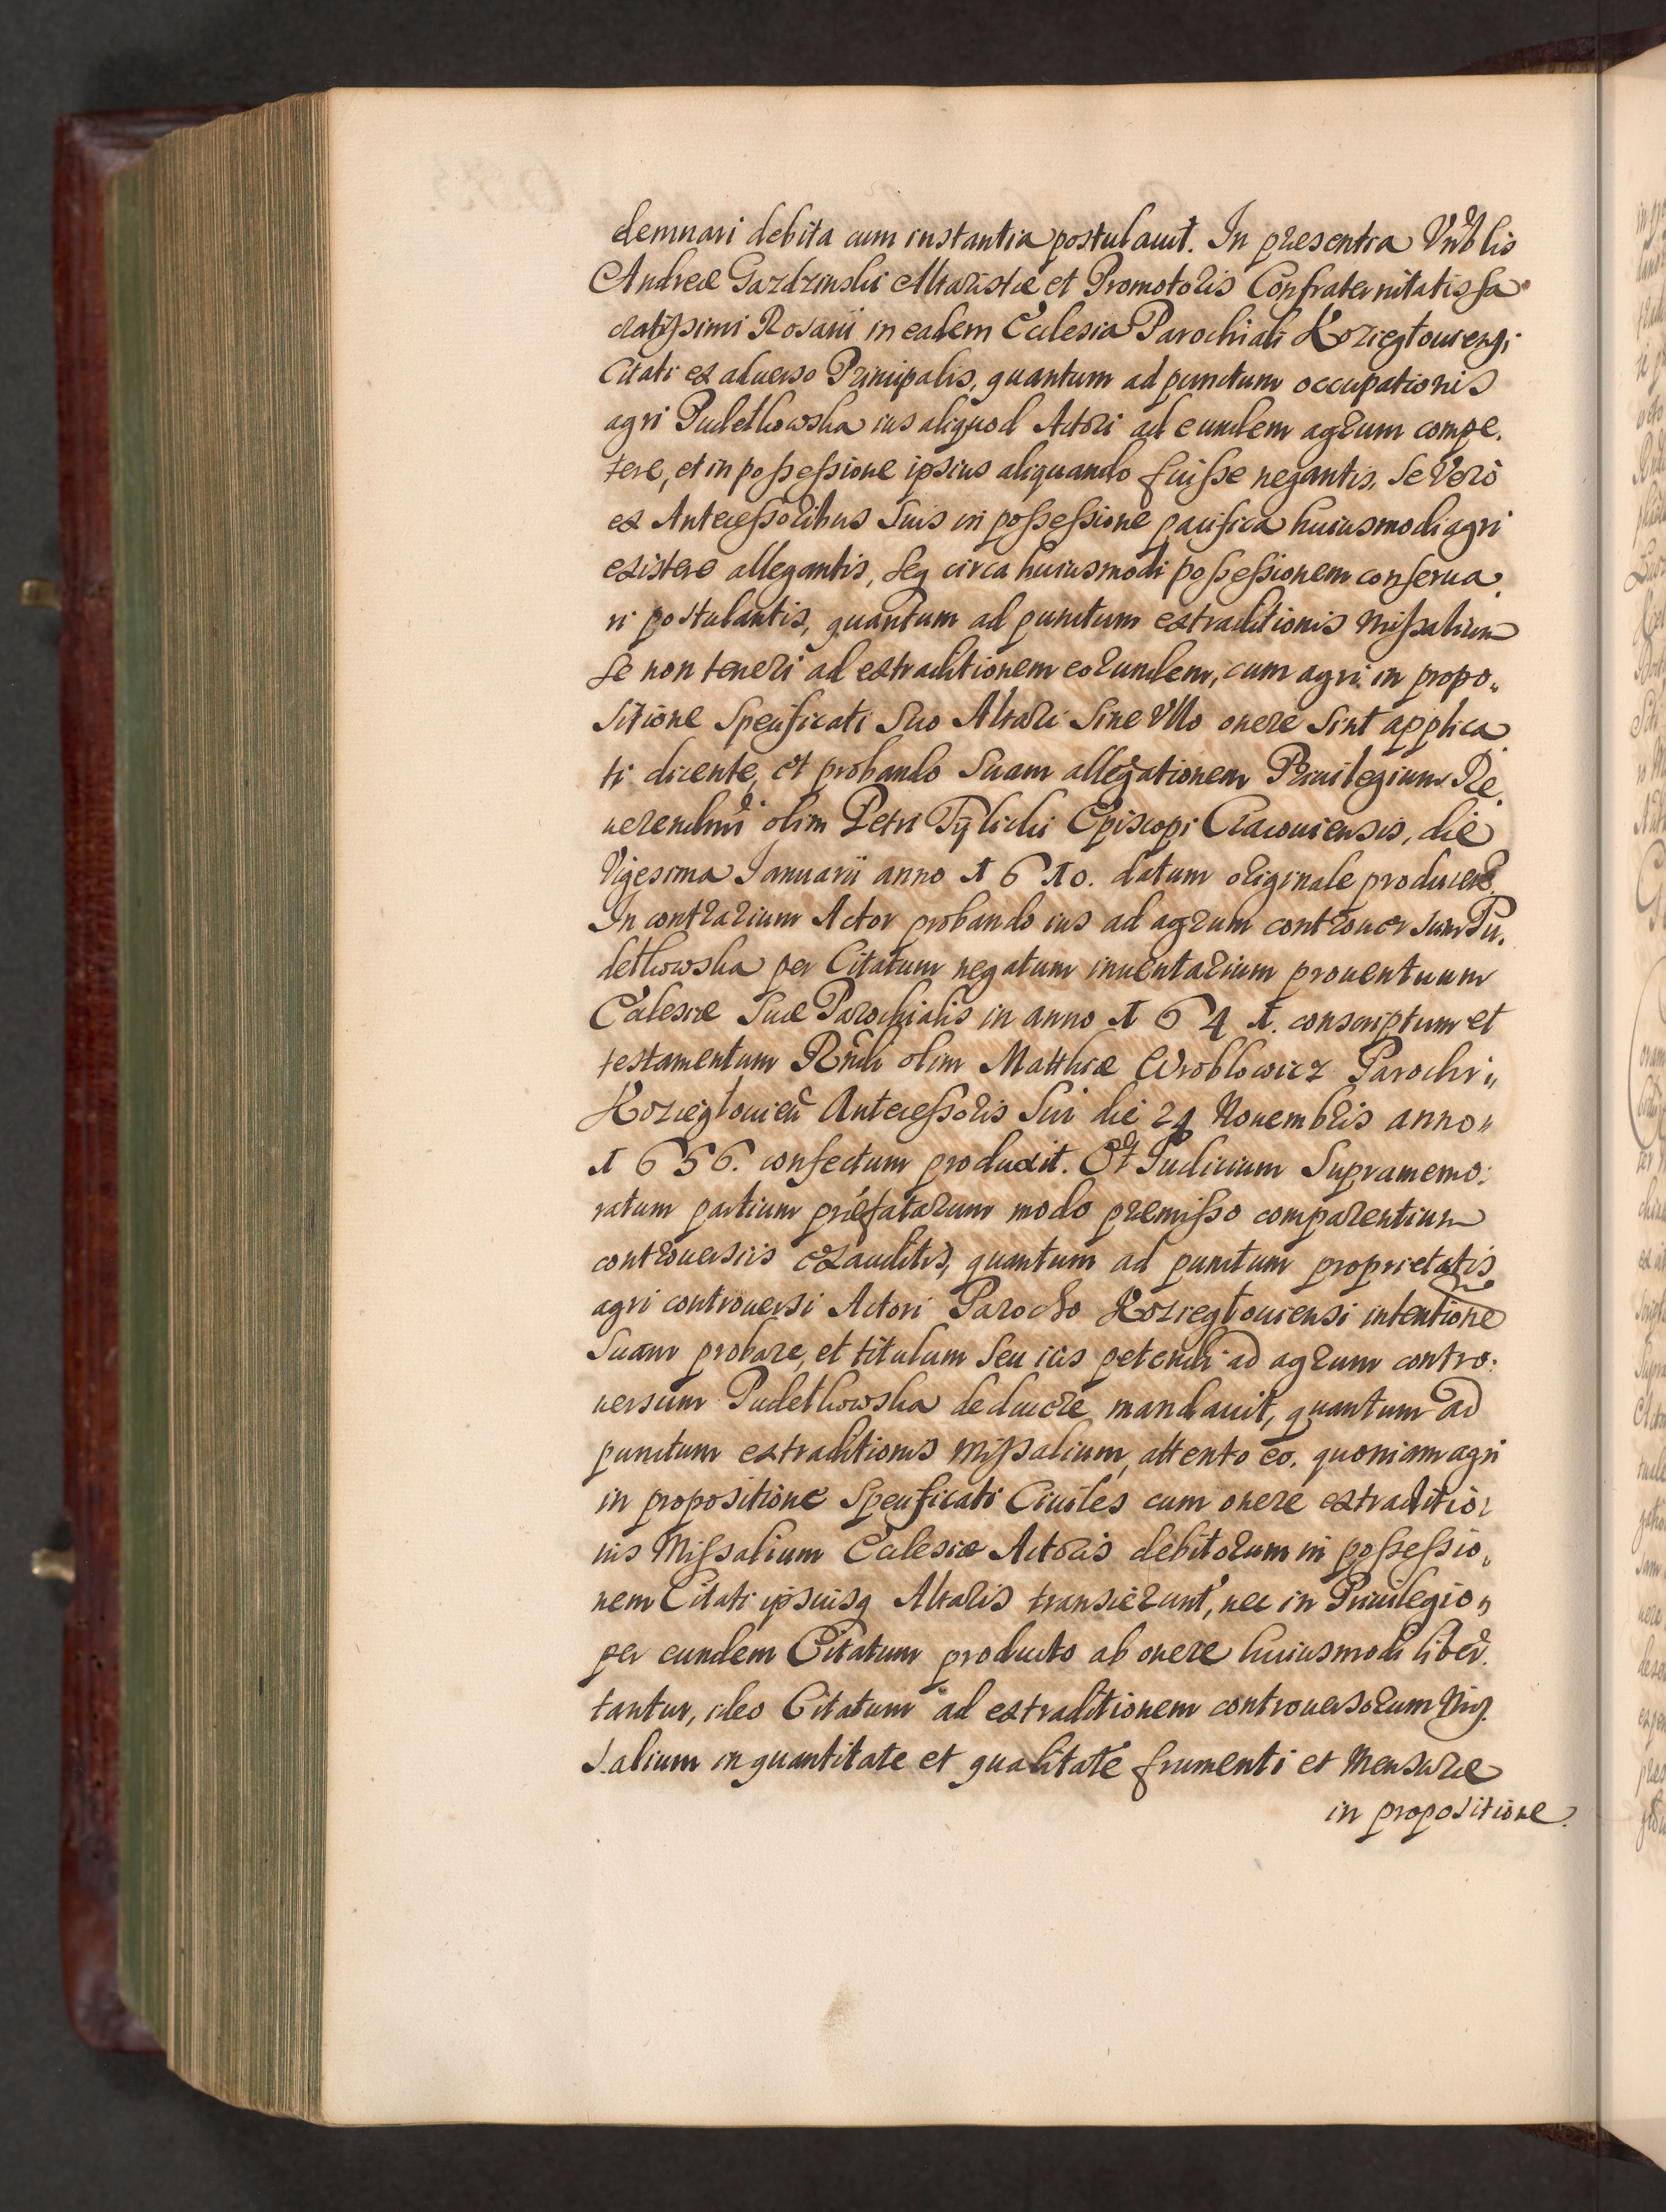 demnari debita cum instantia postulauit. In presentia Vnblis
Andreæ Gazdzinski Altaristæ et Promotoris Confraternitatis sa
cratissimi Rosarii in eadem Ecclesia Parochiali Koziegłouiensi
Citati ex aduerso Principalis, quantum ad punctum occupationis
agri Pudełkowska ius aliquod Actori ad eundem agrum compe.
tere, et in possessione ipsius aliquando fuisse negantis, se Vero
ex Antecessoribus suis in possessione pacifica huiusmodi agri
existere allegantis, seq circa huiusmodi possessionem conserua.
ri postulantis, quantum ad punctum extraditionis Missalium
se non teneri ad extraditionem eorundem, cum agri in propo„
sitione specificati suo Altari sine Vllo onere sint applica
ti dicente, et probando suam allegationem Priuilegium Re.
uerendmi olim Petri Tylicki Episcopi Cracouiensis, die
Vigesima Ianuarii anno 1610. datum originale producen.
In contrarium Actor probando ius ad agrum controuersum Pu.
dełkowska per Citatum negatum inuentarium prouentuum
Ecclesiæ suæ Parochialis in anno 1641. conscriptum et
testamentum Rndi olim Matthiæ Wroblowicz Parochi„
Koziegłouien Antecessoris sui die 24 Nouembris anno„
1656. confectum produxit. Et Iudicium supramemo:
ratum partium præfatarum modo premisso comparentium
controuersiis exauditis, quantum ad punctum proprietatis
agri controuersi Actori Parocho Koziegłouiensi intentione
suam probare, et titulum seu ius petendi ad agrum contro:
uersum Pudełkowska deducere mandauit, quantum ad
punctum extraditionis Missalium, attento eo. quoniam agri
in propositione specificati Ciuiles cum onere extraditio:
nis Missalium Ecclesiæ Actoris debitorum in possessio„
nem Citati ipsiusq Altaris transierunt, nec in Priuilegio„
per eundem Citatum producto ab onere huiusmodi liber.
tantur, ideo Citatum ad extraditionem controuersorum Mis.
salium in quantitate et qualitate frumenti et Mensuræ
in propositione.